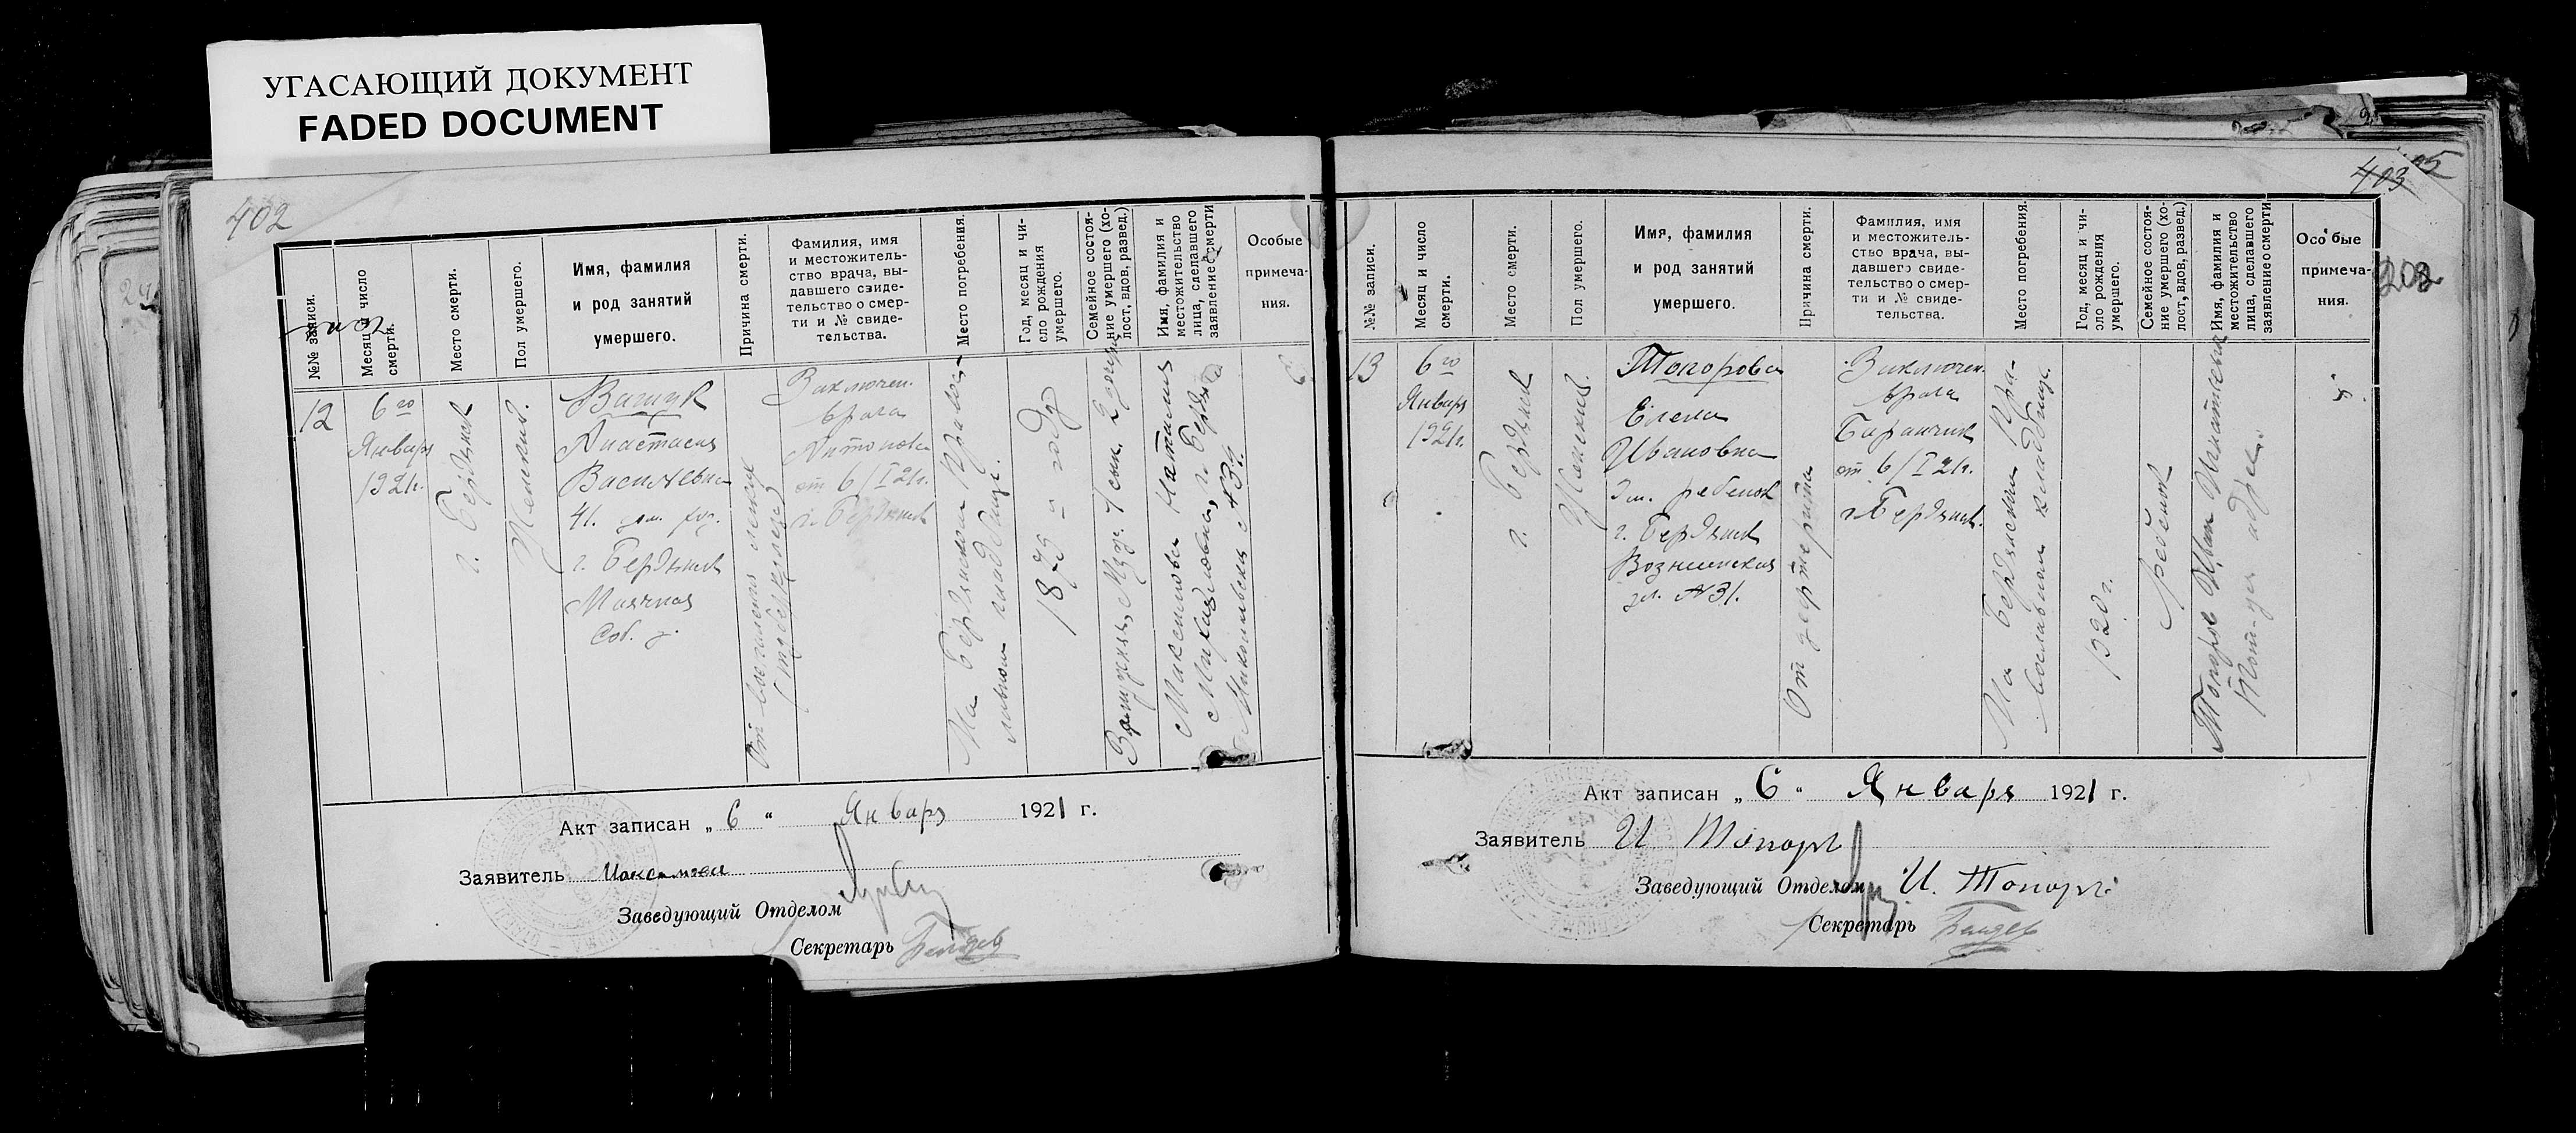 УГАСАЮЩИЙ ДОКУМЕНТ
FADED DOCUMENT
402
№№ записи.
Месяц и число смерти.
Место смерти.
Пол умершего.
Имя, фамилия
и род занятий
умершего.
Причина смерти.
Фамилия, имя
и местожитель-
ство врача, вы-
давшего свиде-
тельство о смер-
ти и № свиде-
тельства.
Место погребения.
Год, месяц и чи-
сло рождения
умершего.
Семейное состоя-
ние умершего (хо-
лост, вдов, развед.)
Имя, фамилия и
местожительство
лица, сделавшего
заявление о смерти
Особые
примеча-
ния.
12
6го
Январь
1921г.
г. Бердянск
Женский.
Ващук
Анастасия
Васильевна
41.
г. Бердянск
Маячная
Соб. д.
От воспаления легких
Заключен.
врача
Антонова
от 6/I 21г.
г. Бердянск
На Бердянском Правос-
лавном кладбище.
1879 году
Замужняя, Муж. 1 сын. 2 дочери
Максимова Наталия
Михайловна, г. Бердянск
Никольская № 39.
Акт записан „ 6 “ Январь 1921 г.
Заявитель Максимова
Заведующий Отделом
Секретарь
403
5
202
№№ записи.
Месяц и число
смерти.
Место смерти.
Пол умершего.
Имя, фамилия
и род занятий
умершего.
Причина смерти.
Фамилия, имя
и местожитель-
ство врача, вы-
давшего свиде-
тельство о смер-
ти и № свиде-
тельства.
Место погребения.
Год, месяц и чи-
сло рождения
умершего.
Семейное состоя-
ние умершего (хо-
лост, вдов, развед.)
Имя, фамилия и
местожительство
лица, сделавшего
заявление о смерти
Особые
примеча-
ния.
13
6го
Январь
1921г.
г. Бердянск
Женский.
Топорова
Елена
Ивановна
ребенок
г. Бердянск
Вознесенская
ул. № 31.
От дезтерита
Заключен.
врача
Баранчик
от 6/I 21г.
г. Бердянск.
На Бердянском Пра-
вославном кладбище.
1920 г.
ребенок
Топоров Иван Игнатьевич
адрес.
Акт записан „ 6 “ Январь 1921 г.
Заявитель И Топорв
Заведующий Отделом И. Топорв
Секретарь